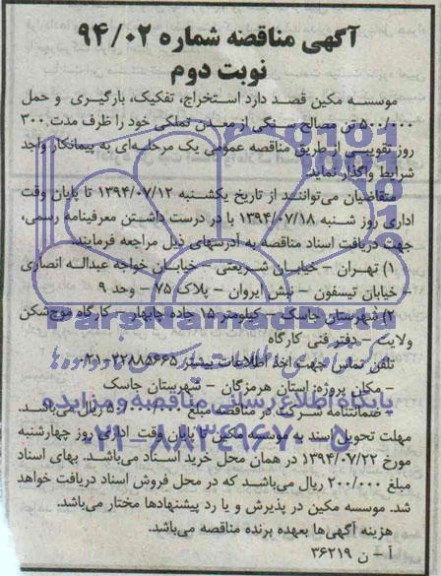 آگهی مناقصه شماره ۹۴/۰۲
نوبت دوم
موسسه مکین قصد دارد استخراج، تفکیک، بارگیری و حمل
۵۰۰/۰۰۰ تن مصالح سنگی از معدن تملکی خود را ظرف مدت ۳۰۰
روز تقویمی از طریق مناقصه عمومی یک مرحله‌ای به پیمانکار واجد
شرایط واگذار نماید.
متقاضیان می‌توانند از تاریخ یکشنبه ۱۳۹۴/۰۷/۱۲ تا پایان وقت
اداری روز شنبه ۱۳۹۴/۰۷/۱۸ با در درست داشتن معرفینامه رسمی،
جهت دریافت اسناد مناقصه به آدرسهای ذیل مراجعه فرمایند.
۱) تهران – خیابان شریعتی – خیابان خواجه عبداله انصاری
– خیابان تیسفون – نبش ایروان – پلاک ۷۵ – وحد ۹
۲) شهرستان جاسک – کیلومتر ۱۵ جاده چابهار – کارگاه موج‌شکن
ولایت – دفتر فنی کارگاه
ParsNamadData
تلفن تماس جهت اخذ اطلاعات بیشتر ۲۲۸۸۵۶۶۵-۰۲۱
– مکان پروژه: استان هرمزگان – شهرستان جاسک
پایگاه اطلاع رسانی مناقصه و مزایده
– ضمانتنامه شرکت در مناقصه مبلغ ریال می‌باشد.
۰۲۱-۸۸۳۴۹۶۷۰-۵
مهلت تحویل اسناد به موسسه مکین تا پایان وقت اداری روز چهارشنبه
مورخ ۱۳۹۴/۰۷/۲۲ در همان محل خرید اسناد می‌باشد. بهای اسناد
مبلغ ۲۰۰/۰۰۰ ریال می‌باشد که در محل فروش اسناد دریافت خواهد
شد. موسسه مکین در پذیرش و یا رد پیشنهادها مختار می‌باشد.
هزینه آگهی‌ها بعهده برنده مناقصه می‌باشد.
آ – ن ۳۶۲۱۹